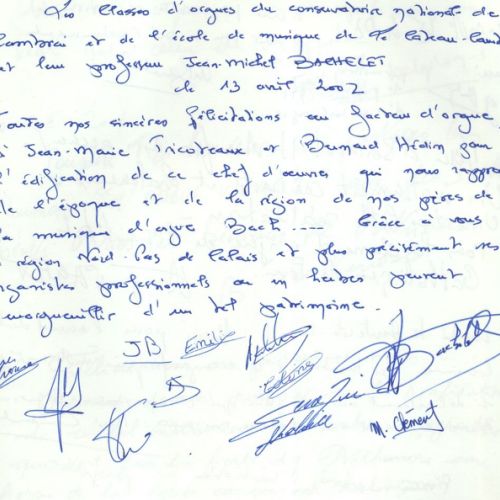 Les classes d'orgues du conservatoire national de
Cambrai et de l'école de musique de Le Cateau-Camb
et leur professeur Jean-Michel BACHELET
le 13 avril 2002
Toutes nos sincères félicitations au facteur d'orgue
à Jean-Marie Tricoteaux et Bernard Hédin pour
l'édification de ce chef d'oeuvre qui nous rappro
de l'époque et de la région de nos pères de
la musique d'orgue Bach.... Grâce à vous
région Nord-Pas de Calais et plus précisément ses
organistes professionnels ou en herbes peuvent
d'un tel patrimoine.
JB Emilie
M. Clément